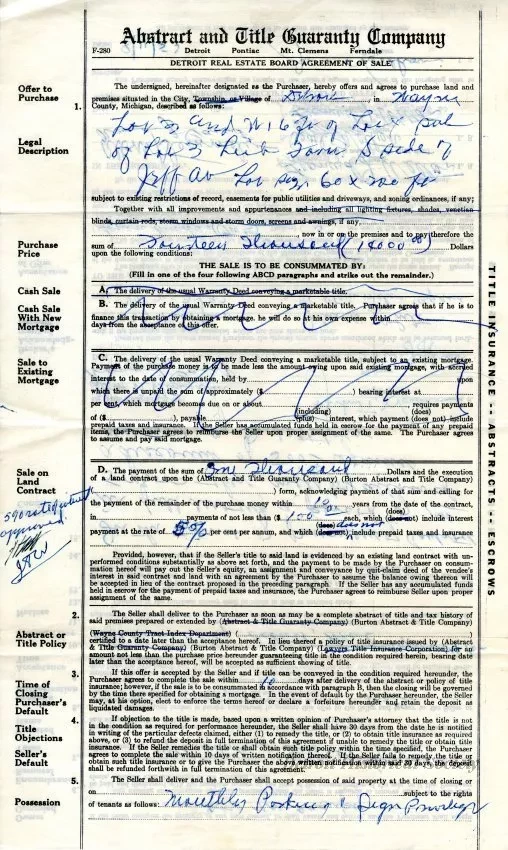 Abstract and Title Guaranty Company
F-280 Detroit Pontiac Mt. Clemens Ferndale
DETROIT REAL ESTATE BOARD AGREEMENT OF SALE
Offer to Purchase
1. The undersigned, hereinafter designated as the Purchaser, hereby offers and agrees to purchase land and
premises situated in the City, Township, or Village of Detroit, in Wayne
County, Michigan, described as follows:
Legal Description
Lot 3 and W 16 ft of Lot 4
of Lot 3 Sub S side of
Jeff Av Lot 60 x 200 ft
subject to existing restrictions of record, easements for public utilities and driveways, and zoning ordinances, if any;
Together with all improvements and appurtenances and including all lighting fixtures, shades, venetian
blinds, curtain-rods, storm windows and storm doors, screens and awnings, if any,
now in or on the premises and to pay therefore the
Purchase Price
sum of Fourteen Thousand (14000 00) Dollars
upon the following conditions:
THE SALE IS TO BE CONSUMMATED BY:
(Fill in one of the four following ABCD paragraphs and strike out the remainder.)
Cash Sale
A. The delivery of the usual Warranty Deed conveying a marketable title.
Cash Sale With New Mortgage
B. The delivery of the usual Warranty Deed conveying a marketable title. Purchaser agrees that if he is to
finance this transaction by obtaining a mortgage, he will do so at his own expense within
days from the acceptance of this offer.
Sale to Existing Mortgage
C. The delivery of the usual Warranty Deed conveying a marketable title, subject to an existing mortgage.
Payment of the purchase money is to be made less the amount owing upon said existing mortgage, with accrued
interest to the date of consummation, held by upon
which there is unpaid the sum of approximately ($ ) bearing interest at
per cent, which mortgage becomes due on or about requires payments
(including) (does)
of ($ ), payable (plus) interest, which payment (does not) include
prepaid taxes and insurance. If the Seller has accumulated funds held in escrow for the payment of any prepaid
items, the Purchaser agrees to reimburse the Seller upon proper assignment of the same. The Purchaser agrees
to assume and pay said mortgage.
Sale on Land Contract
D. The payment of the sum of One Thousand Dollars and the execution
of a land contract upon the (Abstract and Title Guaranty Company) (Burton Abstract and Title Company)
( ) form, acknowledging payment of that sum and calling for
the payment of the remainder of the purchase money within 10 years from the date of contract,
(does)
in payments of not less than ($ 100 each, which (does not) include interest
(does)
payment at the rate of 5% per cent per annum, and which (does not) include prepaid taxes and insurance
5% interest
approved
Provided, however, that if the Seller's title to said land is evidenced by an existing land contract with un-
performed conditions substantially as above set forth, and the payment to be made by the Purchaser on consum-
mation hereof will pay out the Seller's equity, an assignment and conveyance by quit-claim deed of the vendee's
interest in said contract and land with an agreement by the Purchaser to assume the balance owing thereon will
be accepted in lieu of the contract proposed in the preceding paragraph. If the Seller has any accumulated funds
held in escrow for the payment of prepaid taxes and insurance, the Purchaser agrees to reimburse Seller upon proper
assignment of the same.
Abstract or Title Policy
2. The Seller shall deliver to the Purchaser as soon as may be a complete abstract of title and tax history of
said premises prepared or extended by (Abstract & Title Guaranty Company) (Burton Abstract & Title Company)
(Wayne County Tract Index Department) (
certified to a date later than the acceptance hereof. In lieu thereof a policy of title insurance issued by (Abstract
& Title Guaranty Company) (Burton Abstract & Title Company) (Lawyers Title Insurance Corporation) for an
amount not less than the purchase price hereunder guaranteeing title in the condition required herein, bearing date
later than the acceptance hereof, will be accepted as sufficient showing of title.
Time of Closing Purchaser's Default
3. If this offer is accepted by the Seller and if title can be conveyed in the condition required hereunder, the
Purchaser agrees to complete the sale within 10 days after delivery of the abstract or policy of title
insurance; however, if the sale is to be consummated in accordance with paragraph B, then the closing will be governed
by the time there specified for obtaining a mortgage. In the event of default by the Purchaser hereunder, the Seller
may, at his option, elect to enforce the terms hereof or declare a forfeiture hereunder and retain the deposit as
liquidated damages.
Title Objections
Seller's Default
4. If objection to the title is made, based upon a written opinion of Purchaser's attorney that the title is not
in the condition as required for performance hereunder, the Seller shall have 30 days from the date he is notified
in writing of the particular defects claimed, either (1) to remedy the title, or (2) to obtain title insurance as required
above, or (3) to refund the deposit in full termination of this agreement if unable to remedy the title or obtain title
insurance. If the Seller remedies the title or shall obtain such title policy within the time specified, the Purchaser
agrees to complete the sale within 10 days of written notification thereof. If the Seller fails to remedy the title or
obtain such title insurance or to give the Purchaser the above written notification within said 30 days, the deposit
shall be refunded forthwith in full termination of this agreement.
Possession
5. The Seller shall deliver and the Purchaser shall accept possession of said property at the time of closing or
on subject to the rights
of tenants as follows: Monthly Parking & Sign Privilege
TITLE INSURANCE -- ABSTRACTS -- ESCROWS